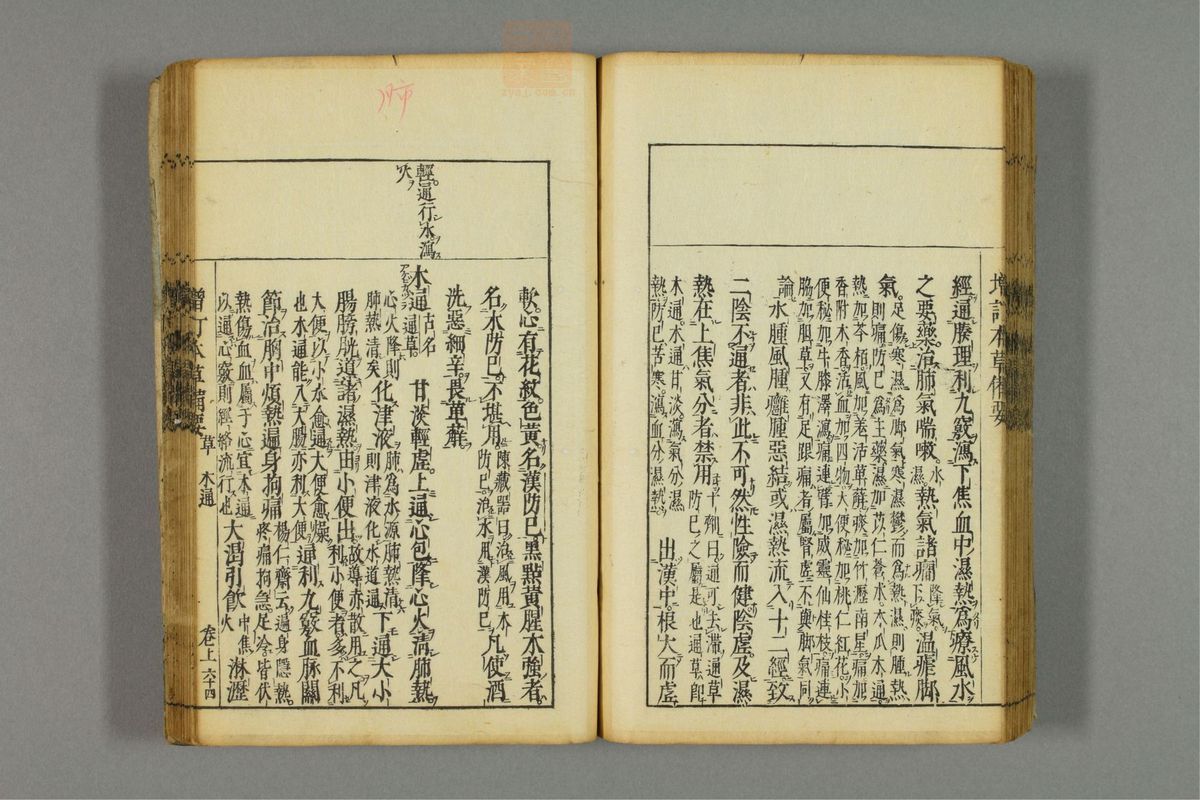 增訂本草備要
經通腠理利九竅瀉下焦血中濕熱爲療風水
之要藥治肺氣喘嗽水濕熱氣諸癇降氣下痰溫瘧脚
氣足傷寒濕爲脚氣寒濕鬱而爲熱濕則腫熱
則痛防已爲主藥濕加苡仁蒼朮木瓜木通
熱加芩栢風加羌活萆薢痰加竹瀝南星痛加
香附木香活血加四物大便秘加桃仁紅花小
便秘加牛膝澤瀉痛連臂加威靈仙桂枝痛連
脇加胆草又有足跟痛者屬腎虛不與脚氣同
論水腫風腫癰腫惡結或濕熱流入十二經致
二陰不通者非此不可然性險而健陰虛及濕
熱在上焦氣分者禁用十劑曰通可去滯通草
防已之屬是也通草卽
木通木通甘淡瀉氣分濕
熱防已苦寒瀉血分濕熱出漢中根大而虛
軟心有花紋色黃名漢防已黑點黃腥木強者
名木防已不堪用陳藏器曰治風用木
防已治水用漢防已凡使酒
洗惡細辛畏萆薢
輕通行水瀉
火
木通古名
通草甘淡輕虛上通心包降心火清肺熱
心火降則
肺熱清矣化津液肺爲水源肺熱清
則津液化水道通下通大小
腸膀胱道諸濕熱由小便出故導赤散用之凡
利小便者多不利
大便以小水愈通大便愈燥
也木通能入大腸亦利大便通利九竅血脉關
節治胸中煩熱遍身拘痛楊仁齋云遍身隱熱
疼痛拘急足冷皆伏
熱傷血血屬于心宜木通
以通心竅則經絡流行也大渴引飲中焦
火淋瀝
增訂本草備要 草 木通 卷上 六十四